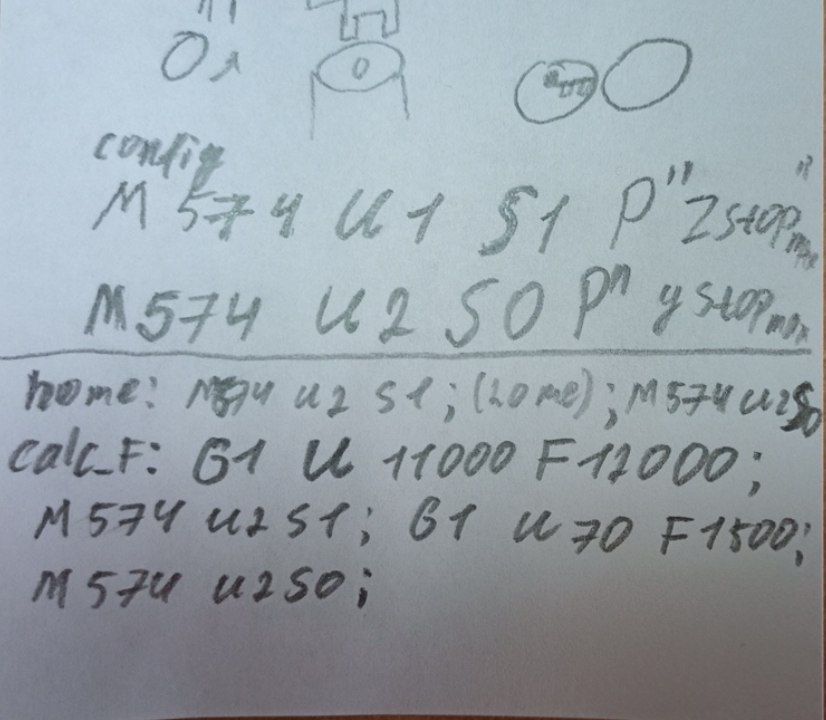 config
M 574 U1 S1 P"Zstop
M574 U2 S0 P" ystop min
home: M574 U2 S1; (home); M574 U2 S0
calc_F: G1 U 11000 F12000;
M574 U2 S1; G1 U70 F1500;
M574 U2S0;